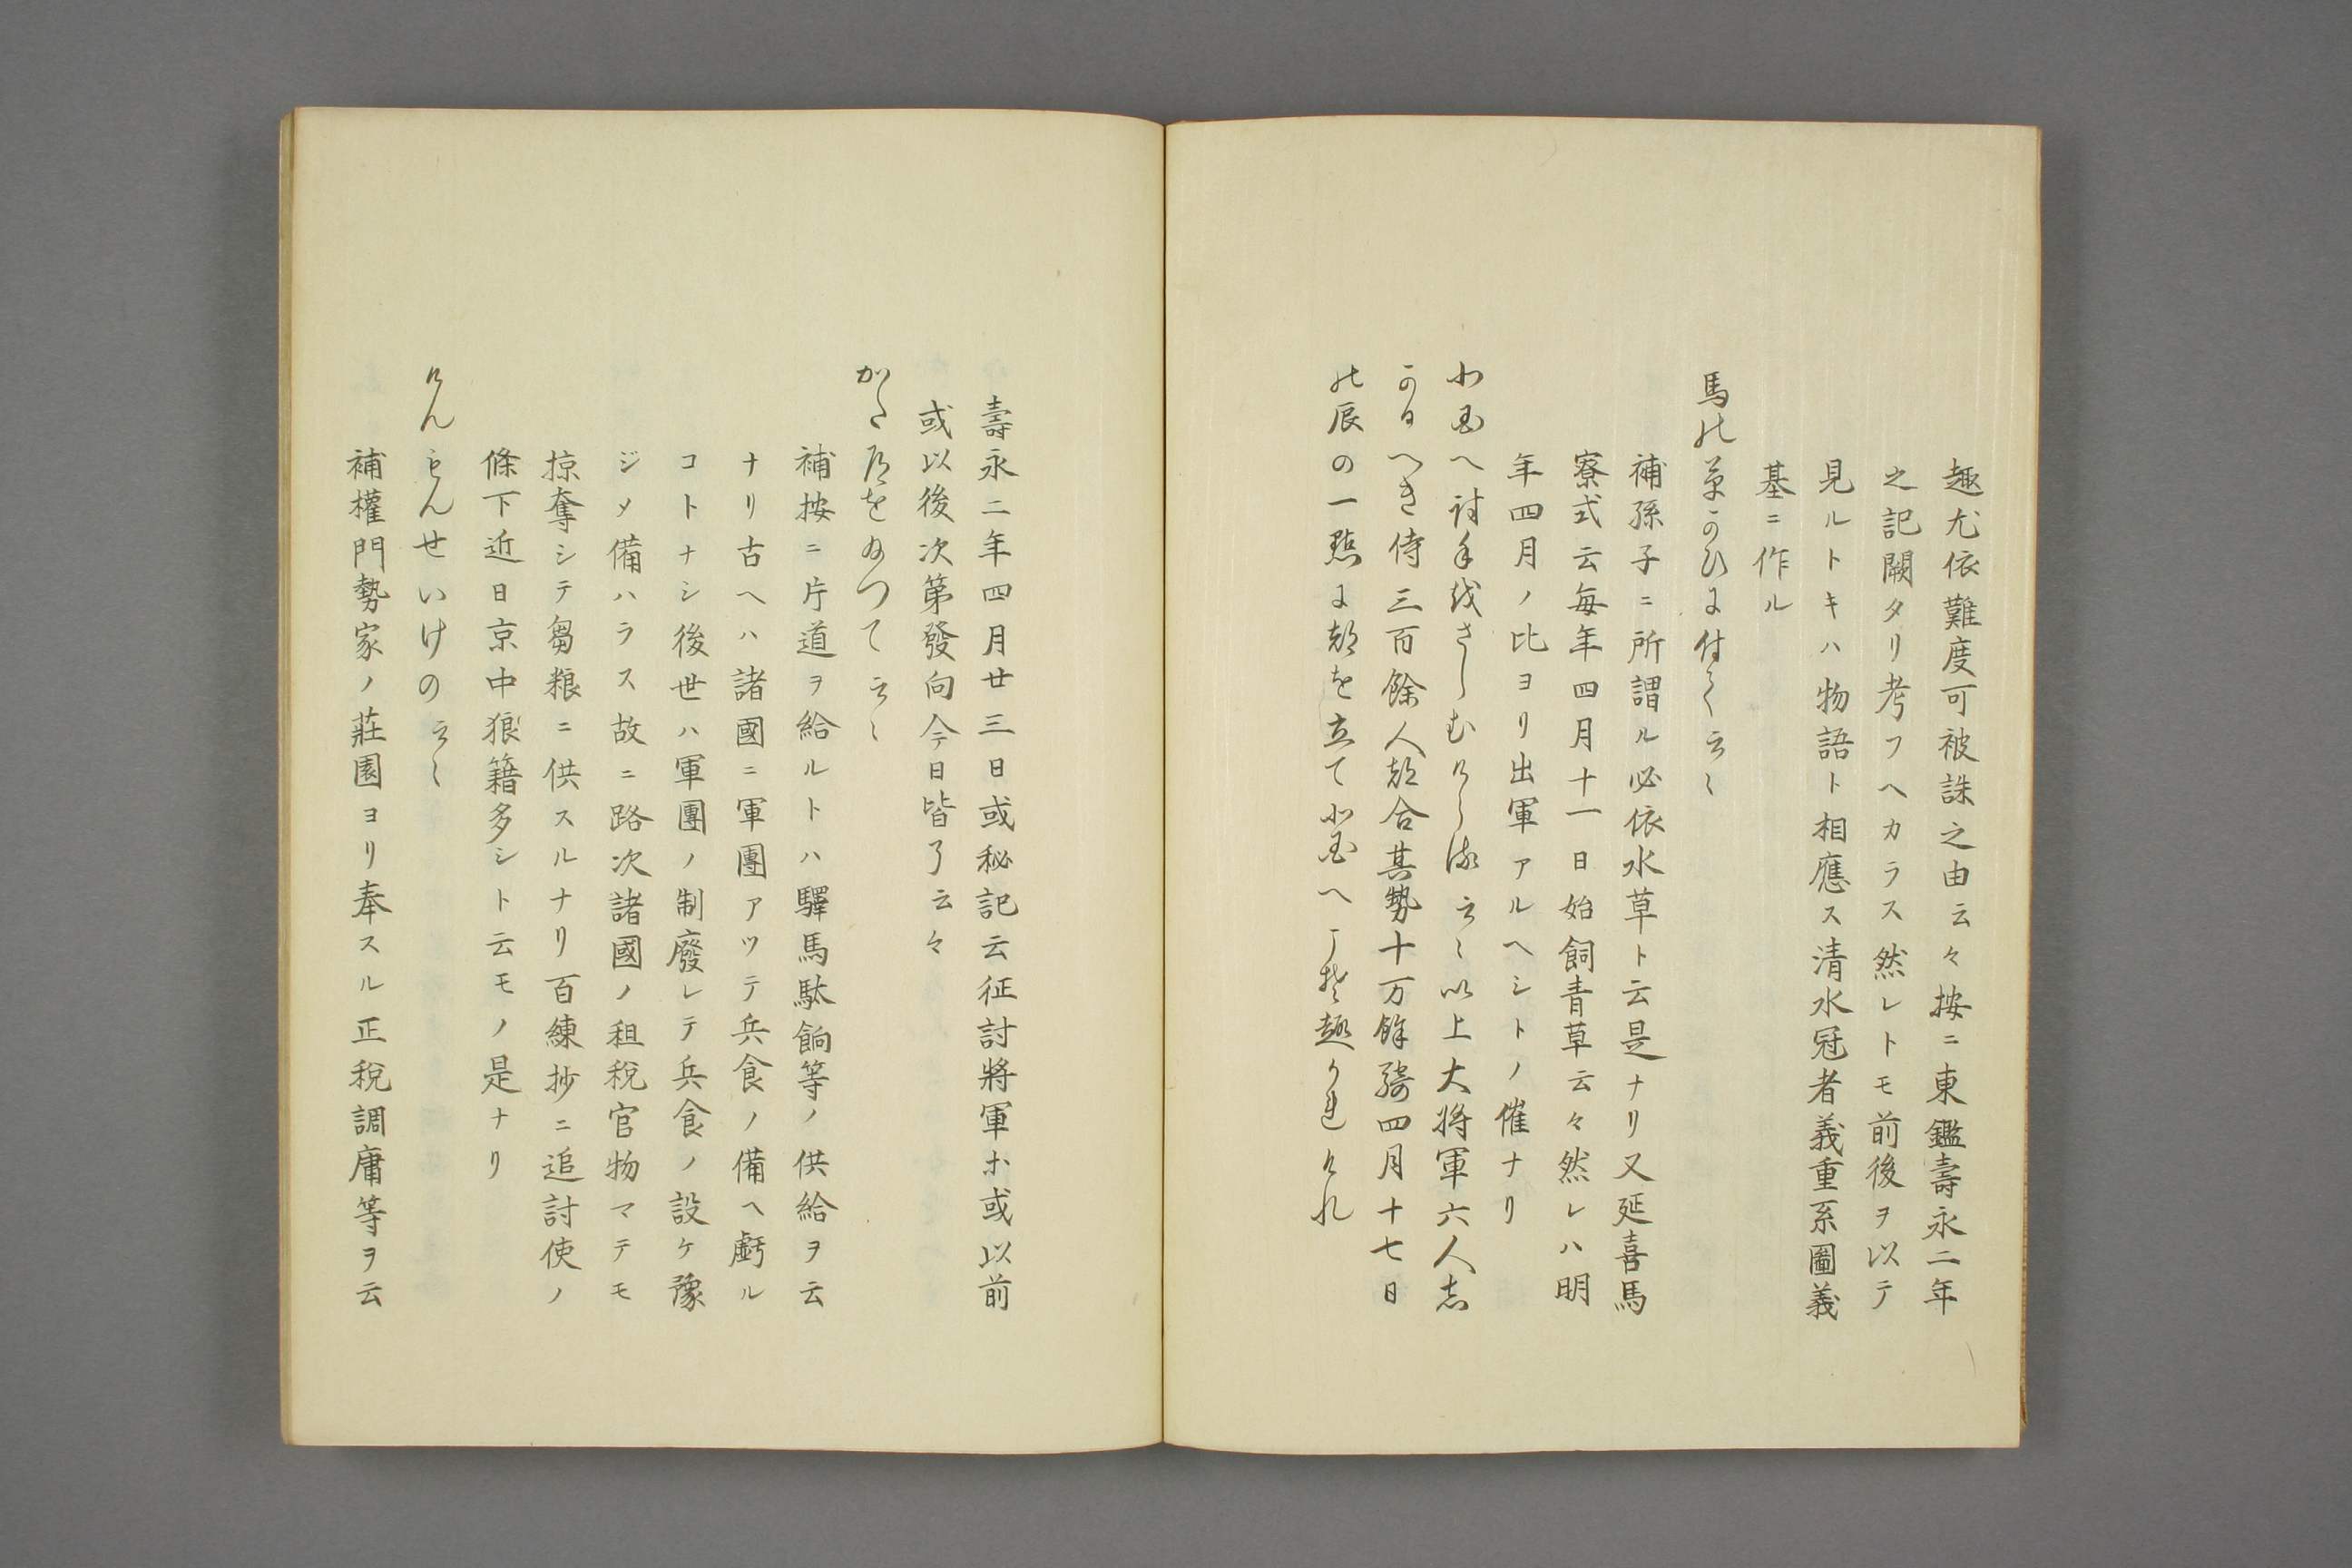 趣尤依難度可被誅之由云々按ニ東鑑壽永二年
之記闕タリ考フヘカラス然レトモ前後ヲ以テ
見ルトキハ物語ト相應ス清水冠者義重系圖義
基ニ作ル
馬の草かひに付て云々
補孫子ニ所謂ル必依水草ト云是ナリ又延喜馬
寮式云毎年四月十一日始飼青草云々然レハ明
年四月ノ比ヨリ出軍アルヘシトノ催ナリ
北国へ討手をさしむけらる云々以上大将軍六人志
かるへき侍三百餘人都合其勢十万餘騎四月十七日
の辰の一點に都を立て北国へこそ趣かれけれ
壽永二年四月廿三日或秘記云征討將軍ホ或以前
或以後次第發向今日皆了云々
かた道を給つて云々
補按ニ片道ヲ給ルトハ驛馬駄餉等ノ供給ヲ云
ナリ古ヘハ諸國ニ軍團アツテ兵食ノ備ヘ虧ル
コトナシ後世ハ軍團ノ制廢レテ兵食ノ設ケ豫
ジメ備ハラス故ニ路次諸國ノ租税官物マテモ
掠奪シテ芻粮ニ供スルナリ百練抄ニ追討使ノ
條下近日京中狼籍多シト云モノ是ナリ
けんもんせいけの云々
補權門勢家ノ莊園ヨリ奉スル正税調庸等ヲ云